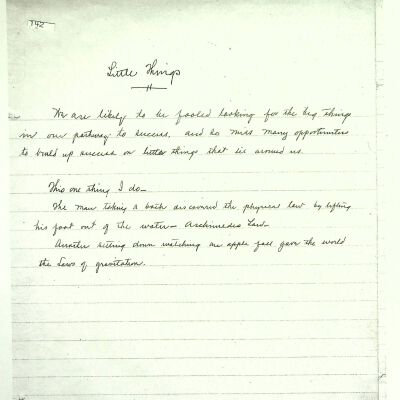 742
Little Things
We are likely to be fooled looking for the big things
in our pathway to success, and so miss many opportunities
to build up success on little things that lie around us.
This one thing I do—
The man taking a bath discovered the physical law by lifting
his foot out of the water— Archimedes Law—
Another sitting down watching an apple fall gave the world
the Laws of gravitation.